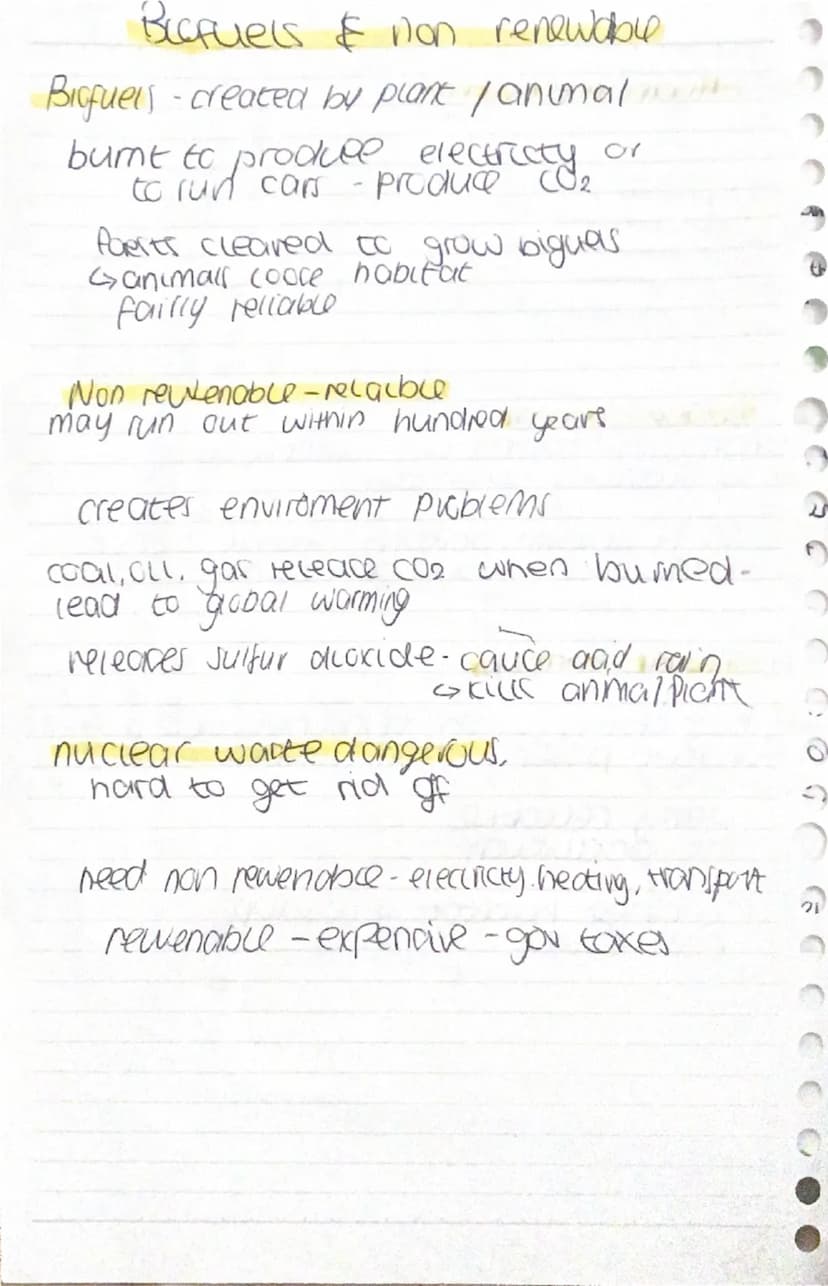 Biofuels & non renewable
Biofuels - created by plant / animal
burnt to produce electricty or
to run cars - produce CO2
forests cleared to grow biofuels
↳ animals loose habitat
fairly reliable
Non rewenable - relaible
may run out within hundred years
creates enviroment problems
coal, oil, gas release CO2 when burned -
lead to global warming
releases sulfur dioxide - cause acid rain
↳ kills animal plant
nuclear waste dangerous,
hard to get rid off
need non rewenable - electricty, heating, transport
rewenable - expensive - gov taxes